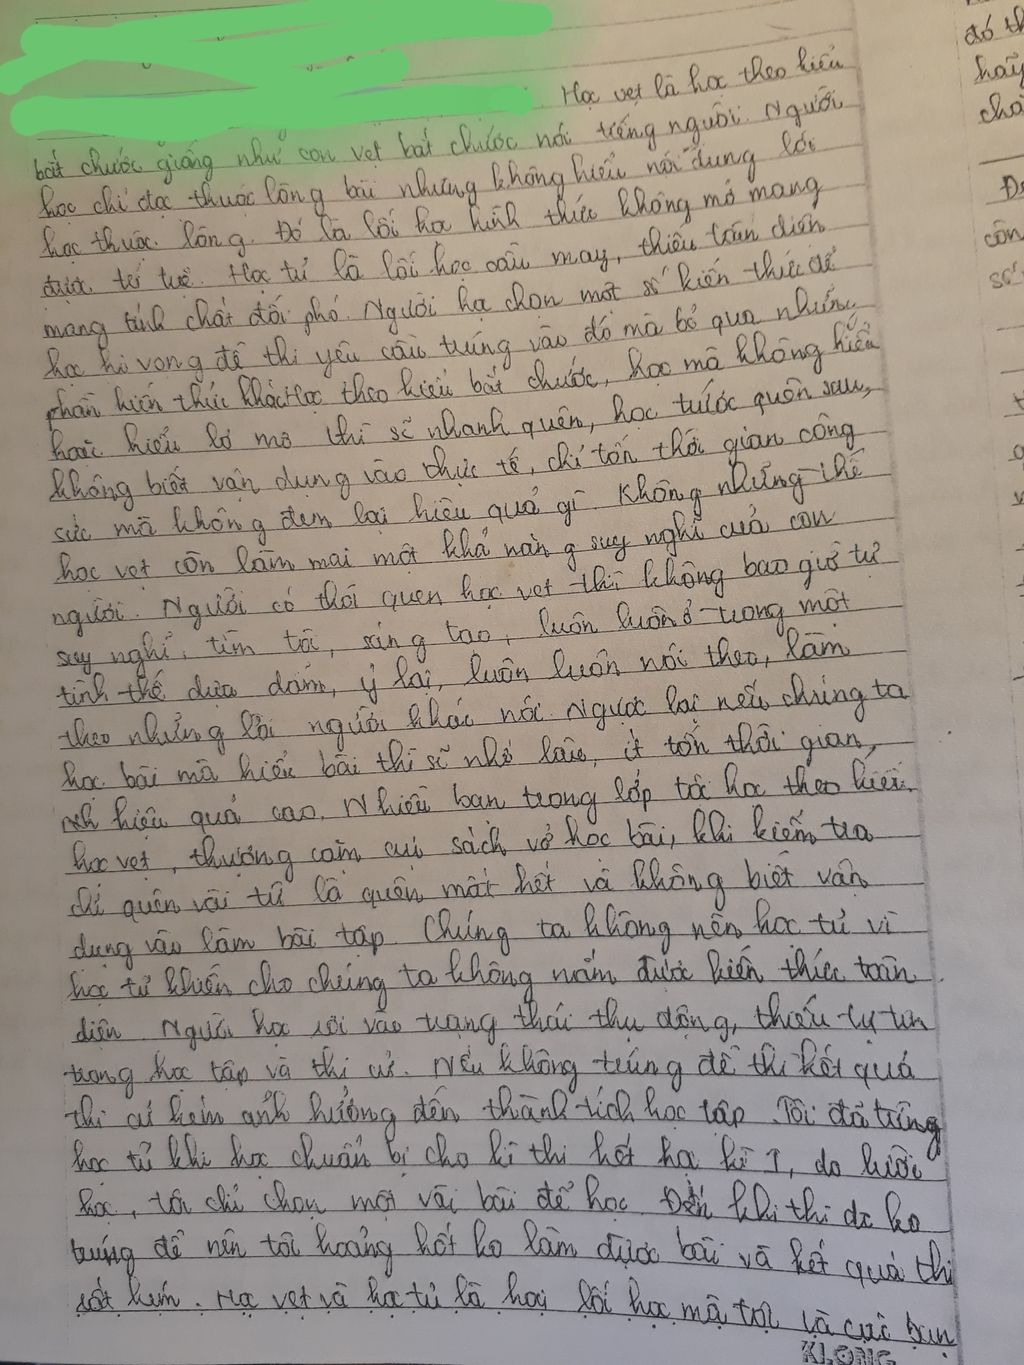 Học vẹt là học theo kiểu
bắt chước giống như con vẹt bắt chước nói tiếng người. Người
học chỉ đọc thuộc lòng bài nhưng không hiểu nội dung lời
học thuộc lòng. Đó là lối học hình thức không mở mang
được trí tuệ. Học tủ là lối học cầu may, thiếu toàn diện
mang tính chất đối phó. Người học chọn một số kiến thức để
học hi vọng đề thi yêu cầu trúng vào đó mà bỏ qua những
phần kiến thức khác. Học theo kiểu bắt chước, học mà không hiểu
hoặc hiểu lơ mơ thì sẽ nhanh quên, học trước quên sau,
không biết vận dụng vào thực tế, chỉ tốn thời gian công
sức mà không đem lại hiệu quả gì. Không những thế
học vẹt còn làm mai một khả năng suy nghĩ của con
người. Người có thói quen học vẹt thì không bao giờ tự
suy nghĩ, tìm tòi, sáng tạo, luôn luôn ở trong một
tình thế dựa dẫm, ỷ lại, luôn luôn nói theo, làm
theo những lời người khác nói. Ngược lại nếu chúng ta
học bài mà hiểu bài thì sẽ nhớ lâu, ít tốn thời gian,
hiệu quả cao. Nhiều bạn trong lớp tôi học theo kiểu
học vẹt, thường cắm cúi sách vở học bài, khi kiểm tra
chỉ quên vài từ là quên mất hết và không biết vận
dụng vào làm bài tập. Chúng ta không nên học tủ vì
học tủ khiến cho chúng ta không nắm được kiến thức toàn
diện. Người học rơi vào trạng thái thụ động, thiếu tự tin
trong học tập và thi cử. Nếu không trúng đề thì kết quả
thi cử kém ảnh hưởng đến thành tích học tập. Tôi đã từng
học tủ khi học chuẩn bị cho kì thi hết học kì 1, do lười
học, tôi chỉ chọn một vài bài để học. Đến khi thi do ko
trúng đề nên tôi hoảng hốt ko làm được bài và kết quả thi
rất kém. Học vẹt và học tủ là hai lối học mà tôi và các bạn
KLONG
đó
hãy